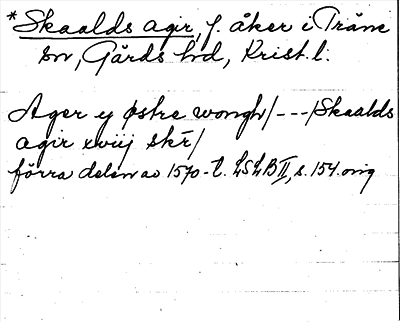 *Skaalds agir, f. åker i Träne
sn, Gärds hd, Krist. l.
Ager ij østre wongh/---/Skaalds
agir xviij skr̄/
förra delen av 1570-t. LSLB II, s. 154. orig